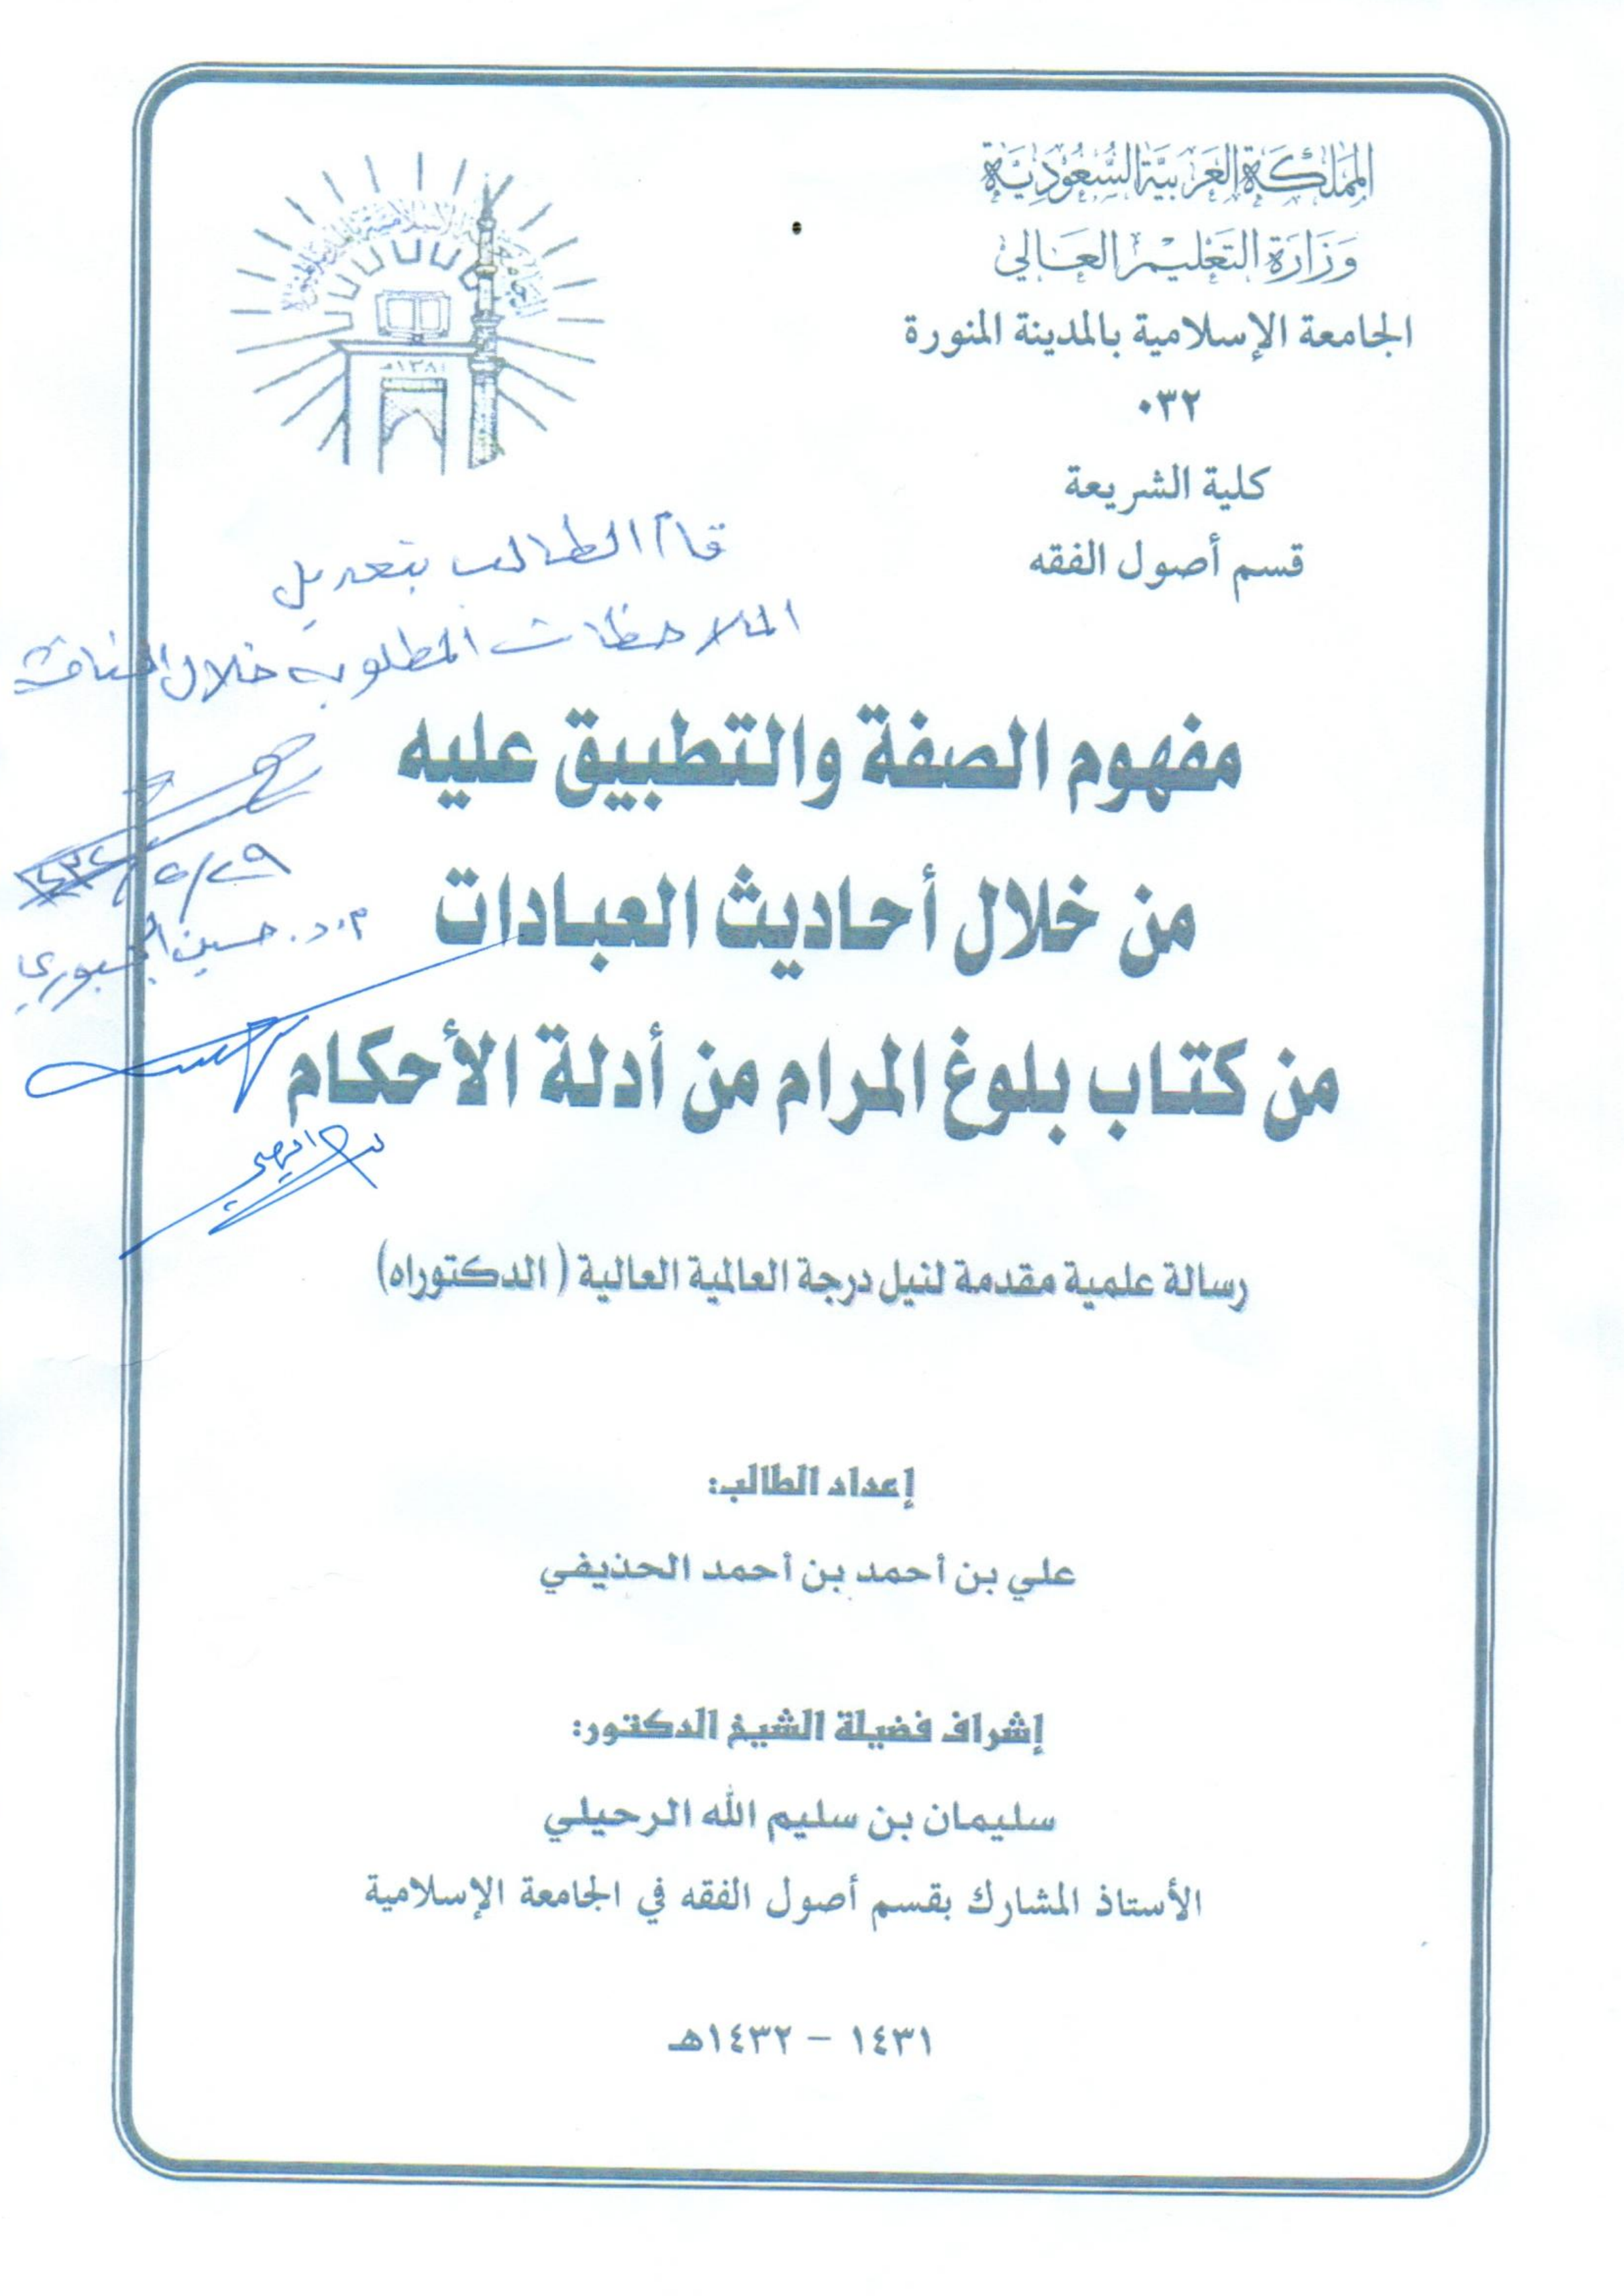 المملكة العربية السعودية
وزارة التعليم العالي
الجامعة الإسلامية بالمدينة المنورة
٠٣٢
كلية الشريعة
قسم أصول الفقه
١٣٨١هـ
قام الطالب بتعديل
الملاحظات المطلوبة خلال المناقشة
مفهوم الصفة والتطبيق عليه
من خلال أحاديث العبادات
من كتاب بلوغ المرام من أدلة الأحكام
د. حسين الجبوري
رسالة علمية مقدمة لنيل درجة العالمية العالية (الدكتوراه)
إعداد الطالب:
علي بن أحمد بن أحمد الحذيفي
إشراف فضيلة الشيخ الدكتور:
سليمان بن سليم الله الرحيلي
الأستاذ المشارك بقسم أصول الفقه في الجامعة الإسلامية
١٤٣١ – ١٤٣٢هـ